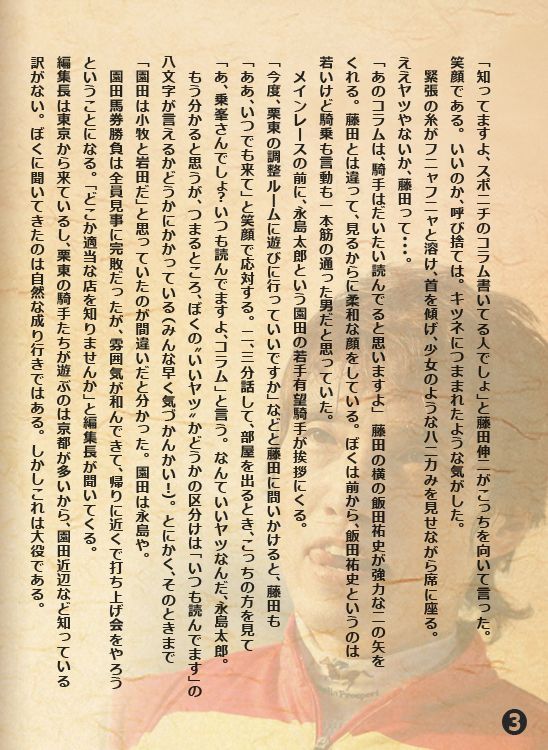 「知ってますよ、スポニチのコラム書いてる人でしょ」と藤田伸二がこっちを向いて言った。
笑顔である。いいのか、呼び捨ては。キツネにつままれたような気がした。
緊張の糸がフニャフニャと溶け、首を傾げ、少女のようなハニカみを見せながら席に座る。
ええヤツやないか、藤田って・・・。
「あのコラムは、騎手はだいたい読んでると思いますよ」藤田の横の飯田祐史が強力な二の矢を
くれる。藤田とは違って、見るからに柔和な顔をしている。ぼくは前から、飯田祐史というのは
若いけど騎乗も言動も一本筋の通った男だと思っていた。
メインレースの前に、永島太郎という園田の若手有望騎手が挨拶にくる。
「今度、栗東の調整ルームに遊びに行っていいですか」などと藤田に問いかけると、藤田も
「ああ、いつでも来て」と笑顔で応対する。二、三分話して、部屋を出るとき、こっちの方を見て
「あ、乗峯さんでしょ?いつも読んでますよ、コラム」と言う。なんていいヤツなんだ、永島太郎。
もう分かると思うが、つまるところ、ぼくの〝いいヤツ〟かどうかの区分けは「いつも読んでます」の
八文字が言えるかどうかにかかっている(みんな早く気づかんかい!)。とにかく、そのときまで
「園田は小牧と岩田だ」と思っていたのが間違いだと分かった。園田は永島や。
園田馬券勝負は全員見事に完敗だったが、雰囲気が和んできて、帰りに近くで打ち上げ会をやろう
ということになる。「どこか適当な店を知りませんか」と編集長が聞いてくる。
編集長は東京から来ているし、栗東の騎手たちが遊ぶのは京都が多いから、園田近辺など知っている
訳がない。ぼくに聞いてきたのは自然な成り行きではある。しかしこれは大役である。
Prosperi
3